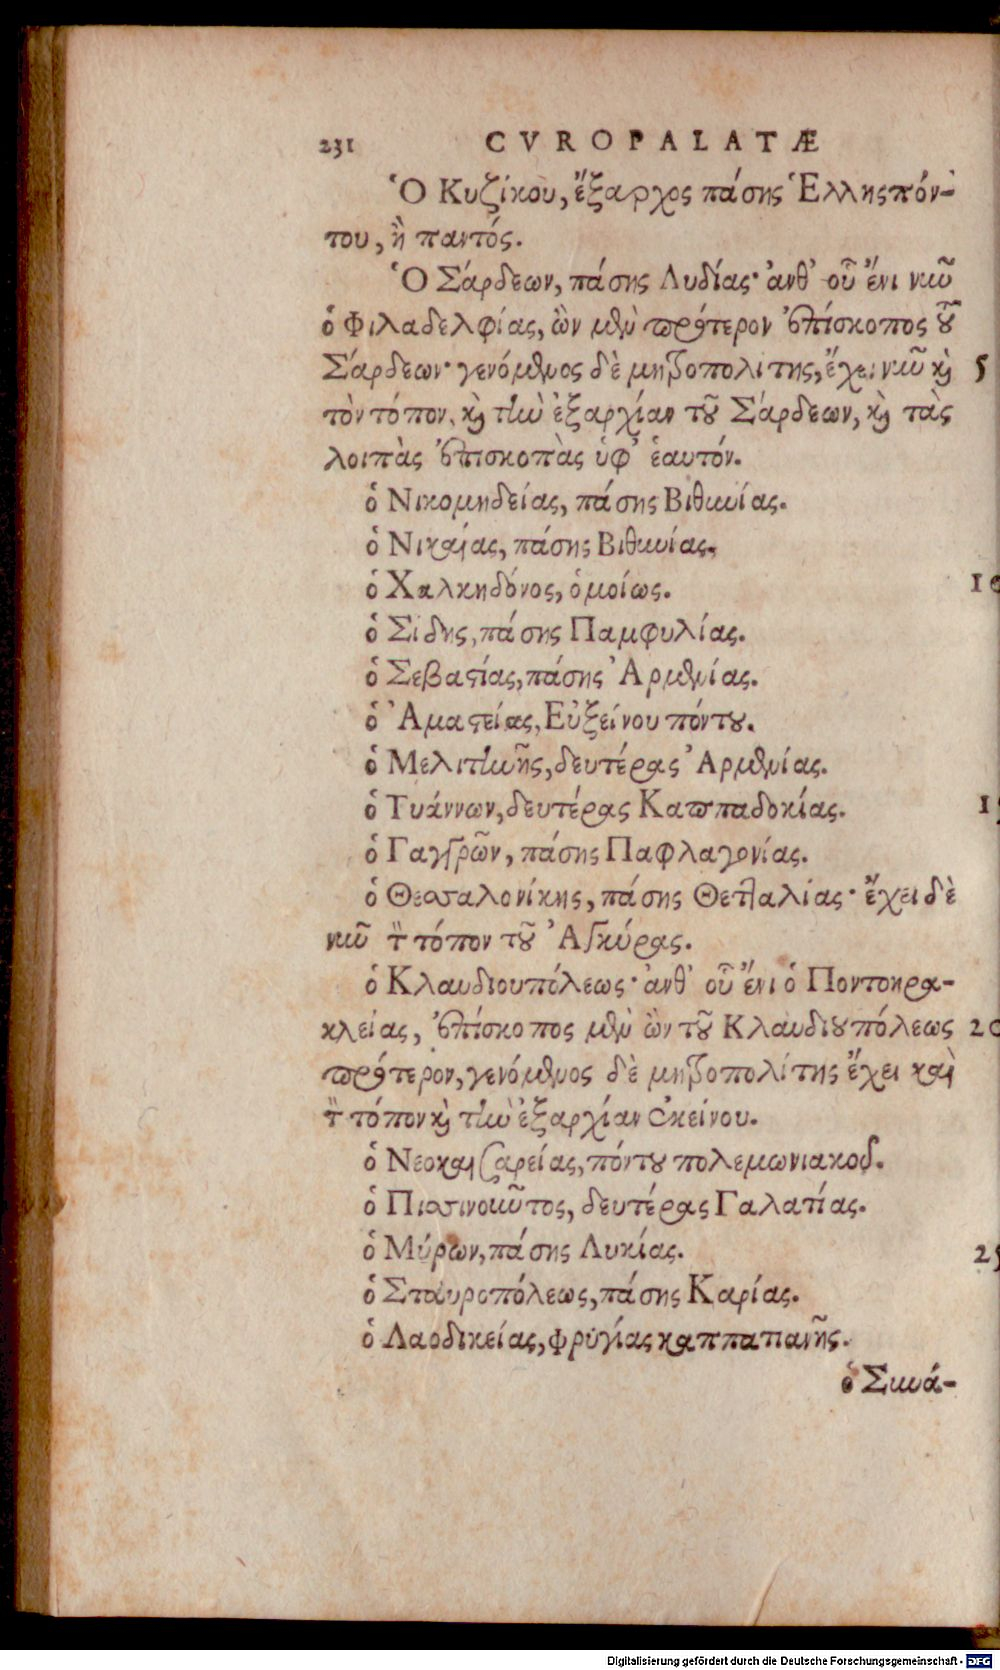 231 CVROPALATÆ
Ὁ Κυζίκου, ἔξαρχος πάσης Ἑλλησπόν-
του, ἢ παντός.
Ὁ Σάρδεων, πάσης Λυδίας· ἀνθ' οὗ ἔνι νῦν
ὁ Φιλαδελφίας, ὢν μὲν πρότερον ἐπίσκοπος τοῦ
Σάρδεων· γενόμενος δὲ μητροπολίτης, ἔχει νῦν καὶ 5
τὸν τόπον, καὶ τὴν ἐξαρχίαν τοῦ Σάρδεων, καὶ τὰς
λοιπὰς ἐπισκοπὰς ὑφ' ἑαυτόν.
ὁ Νικομηδείας, πάσης Βιθυνίας.
ὁ Νικαίας, πάσης Βιθυνίας,
ὁ Χαλκηδόνος, ὁμοίως. 10
ὁ Σίδης, πάσης Παμφυλίας.
ὁ Σεβαστίας, πάσης Ἀρμενίας.
ὁ Ἀμαστείας, Εὐξείνου πόντου.
ὁ Μελιτηνῆς, δευτέρας Ἀρμενίας.
ὁ Τυάννων, δευτέρας Καππαδοκίας. 15
ὁ Γαγγρῶν, πάσης Παφλαγονίας.
ὁ Θεσσαλονίκης, πάσης Θετταλίας· ἔχει δὲ
νῦν τὸν τόπον τοῦ Ἀγκύρας.
ὁ Κλαυδιουπόλεως· ἀνθ' οὗ ἔνι ὁ Ποντοηρα-
κλείας, ἐπίσκοπος μὲν ὢν τοῦ Κλαυδιουπόλεως 20
πρότερον, γενόμενος δὲ μητροπολίτης ἔχει καὶ
τὸν τόπον καὶ τὴν ἐξαρχίαν ἐκείνου.
ὁ Νεοκαισαρείας, πόντου πολεμωνιακοῦ.
ὁ Πισσινοῦντος, δευτέρας Γαλατίας.
ὁ Μύρων, πάσης Λυκίας. 25
ὁ Σταυροπόλεως, πάσης Καρίας.
ὁ Λαοδικείας, φρυγίας καππατιανῆς.
ὁ Συνά-
Digitalisierung gefördert durch die Deutsche Forschungsgemeinschaft - DFG